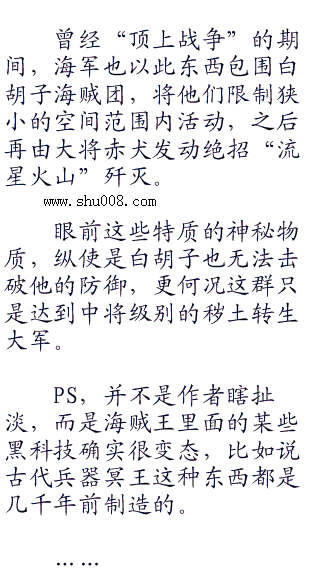 曾经“顶上战争”的期
间，海军也以此东西包围白
胡子海贼团，将他们限制狭
小的空间范围内活动，之后
再由大将赤犬发动绝招“流
星火山”歼灭。
www.shu008.com
眼前这些特质的神秘物
质，纵使是白胡子也无法击
破他的防御，更何况这群只
是达到中将级别的秽土转生
大军。
PS，并不是作者瞎扯
淡，而是海贼王里面的某些
黑科技确实很变态，比如说
古代兵器冥王这种东西都是
几千年前制造的。
……